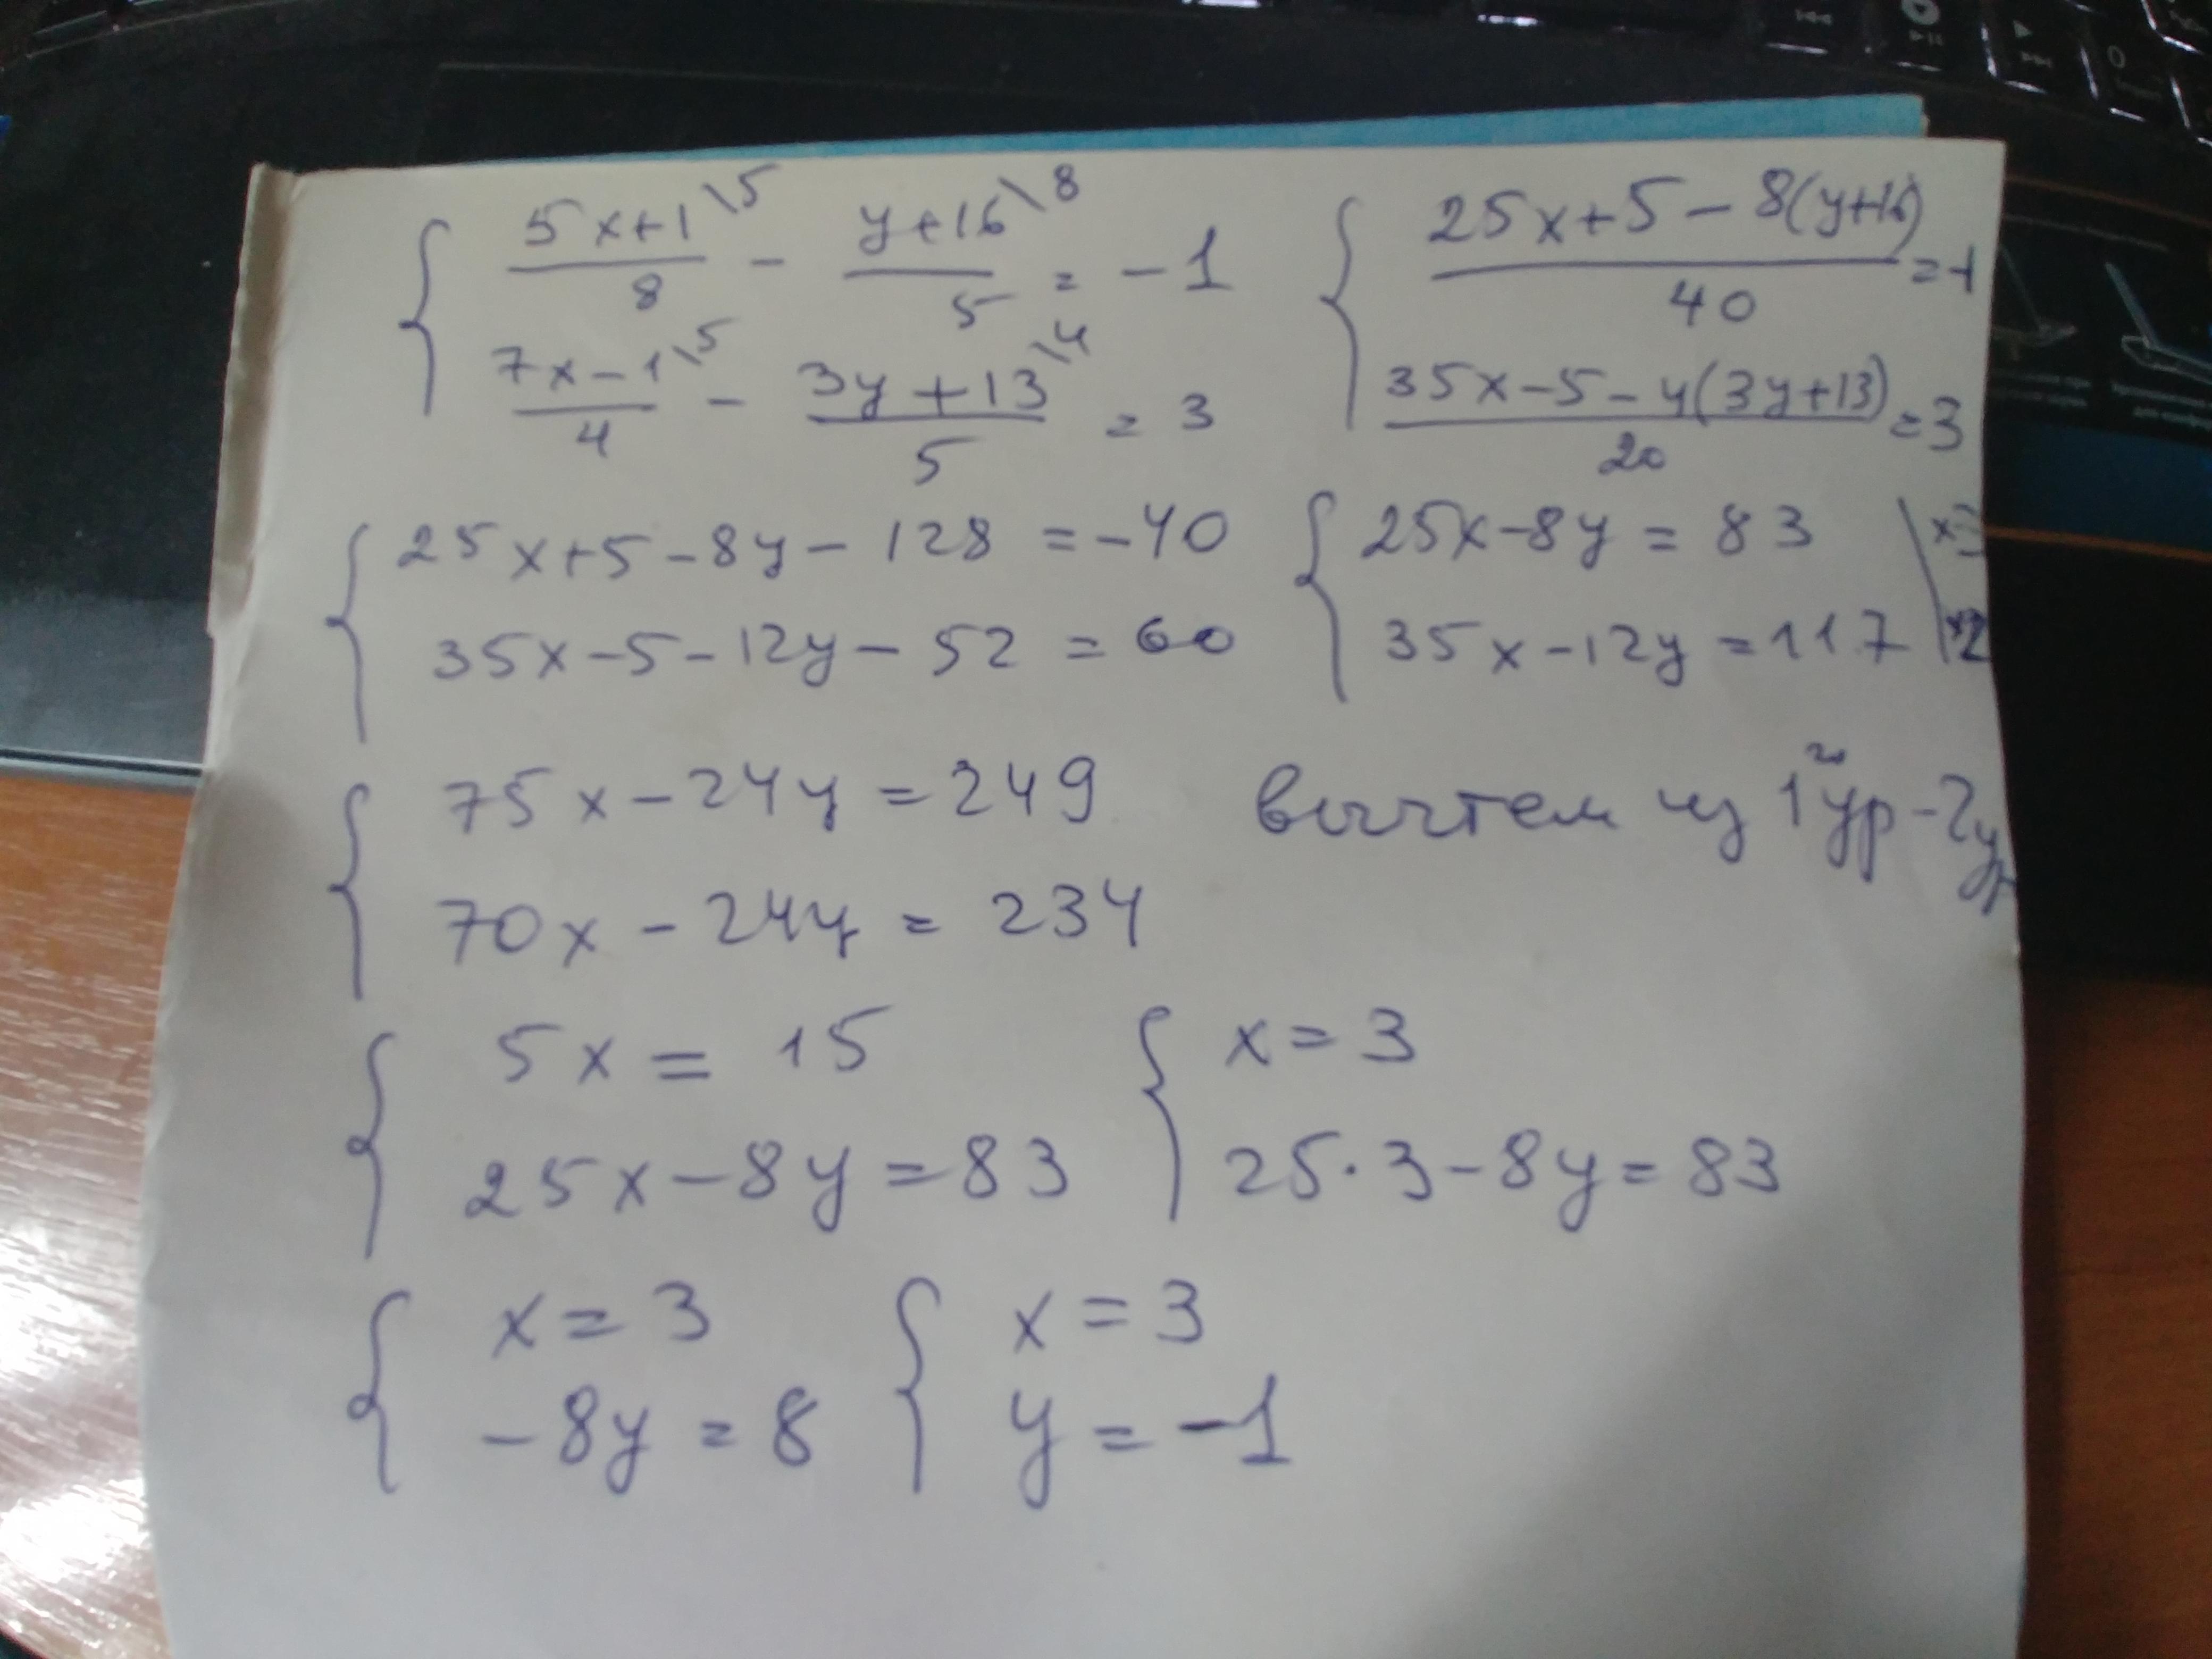 { (5x+1)/8 \5 - (y+16)/5 \8 = -1
(7x-1)/4 \5 - (3y+13)/5 \4 = 3
{ (25x+5-8(y+16))/40 = -1
(35x-5-4(3y+13))/20 = 3
{ 25x+5-8y-128 = -40
35x-5-12y-52 = 60
{ 25x-8y = 83 | x3
35x-12y = 117 | x2
{ 75x-24y = 249
70x-24y = 234
вычтем из 1го ур - 2 ур
{ 5x = 15
25x-8y = 83
{ x = 3
25·3-8y = 83
{ x = 3
-8y = 8
{ x = 3
y = -1